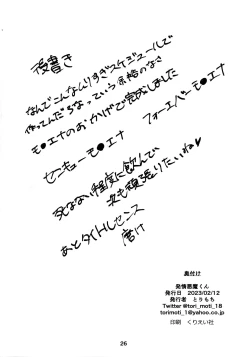 後書き
なんでこんなムリすぎスケジュールで
作ってんだろなっていう余裕のなさ
モ●エナのおかげで完成しました
フォーエバーモ●エナ
センキューモ●エナ
死なない程度に飲んでい
次も頑張りたいね♥
あとタイトルセンス
磨け
奥付け
発情悪魔くん
発行日 2023/02/12
発行者 とりもち
Twitter @tori_moti_18
torimoti_1@yahoo.co.jp
印刷 くりえい社
26